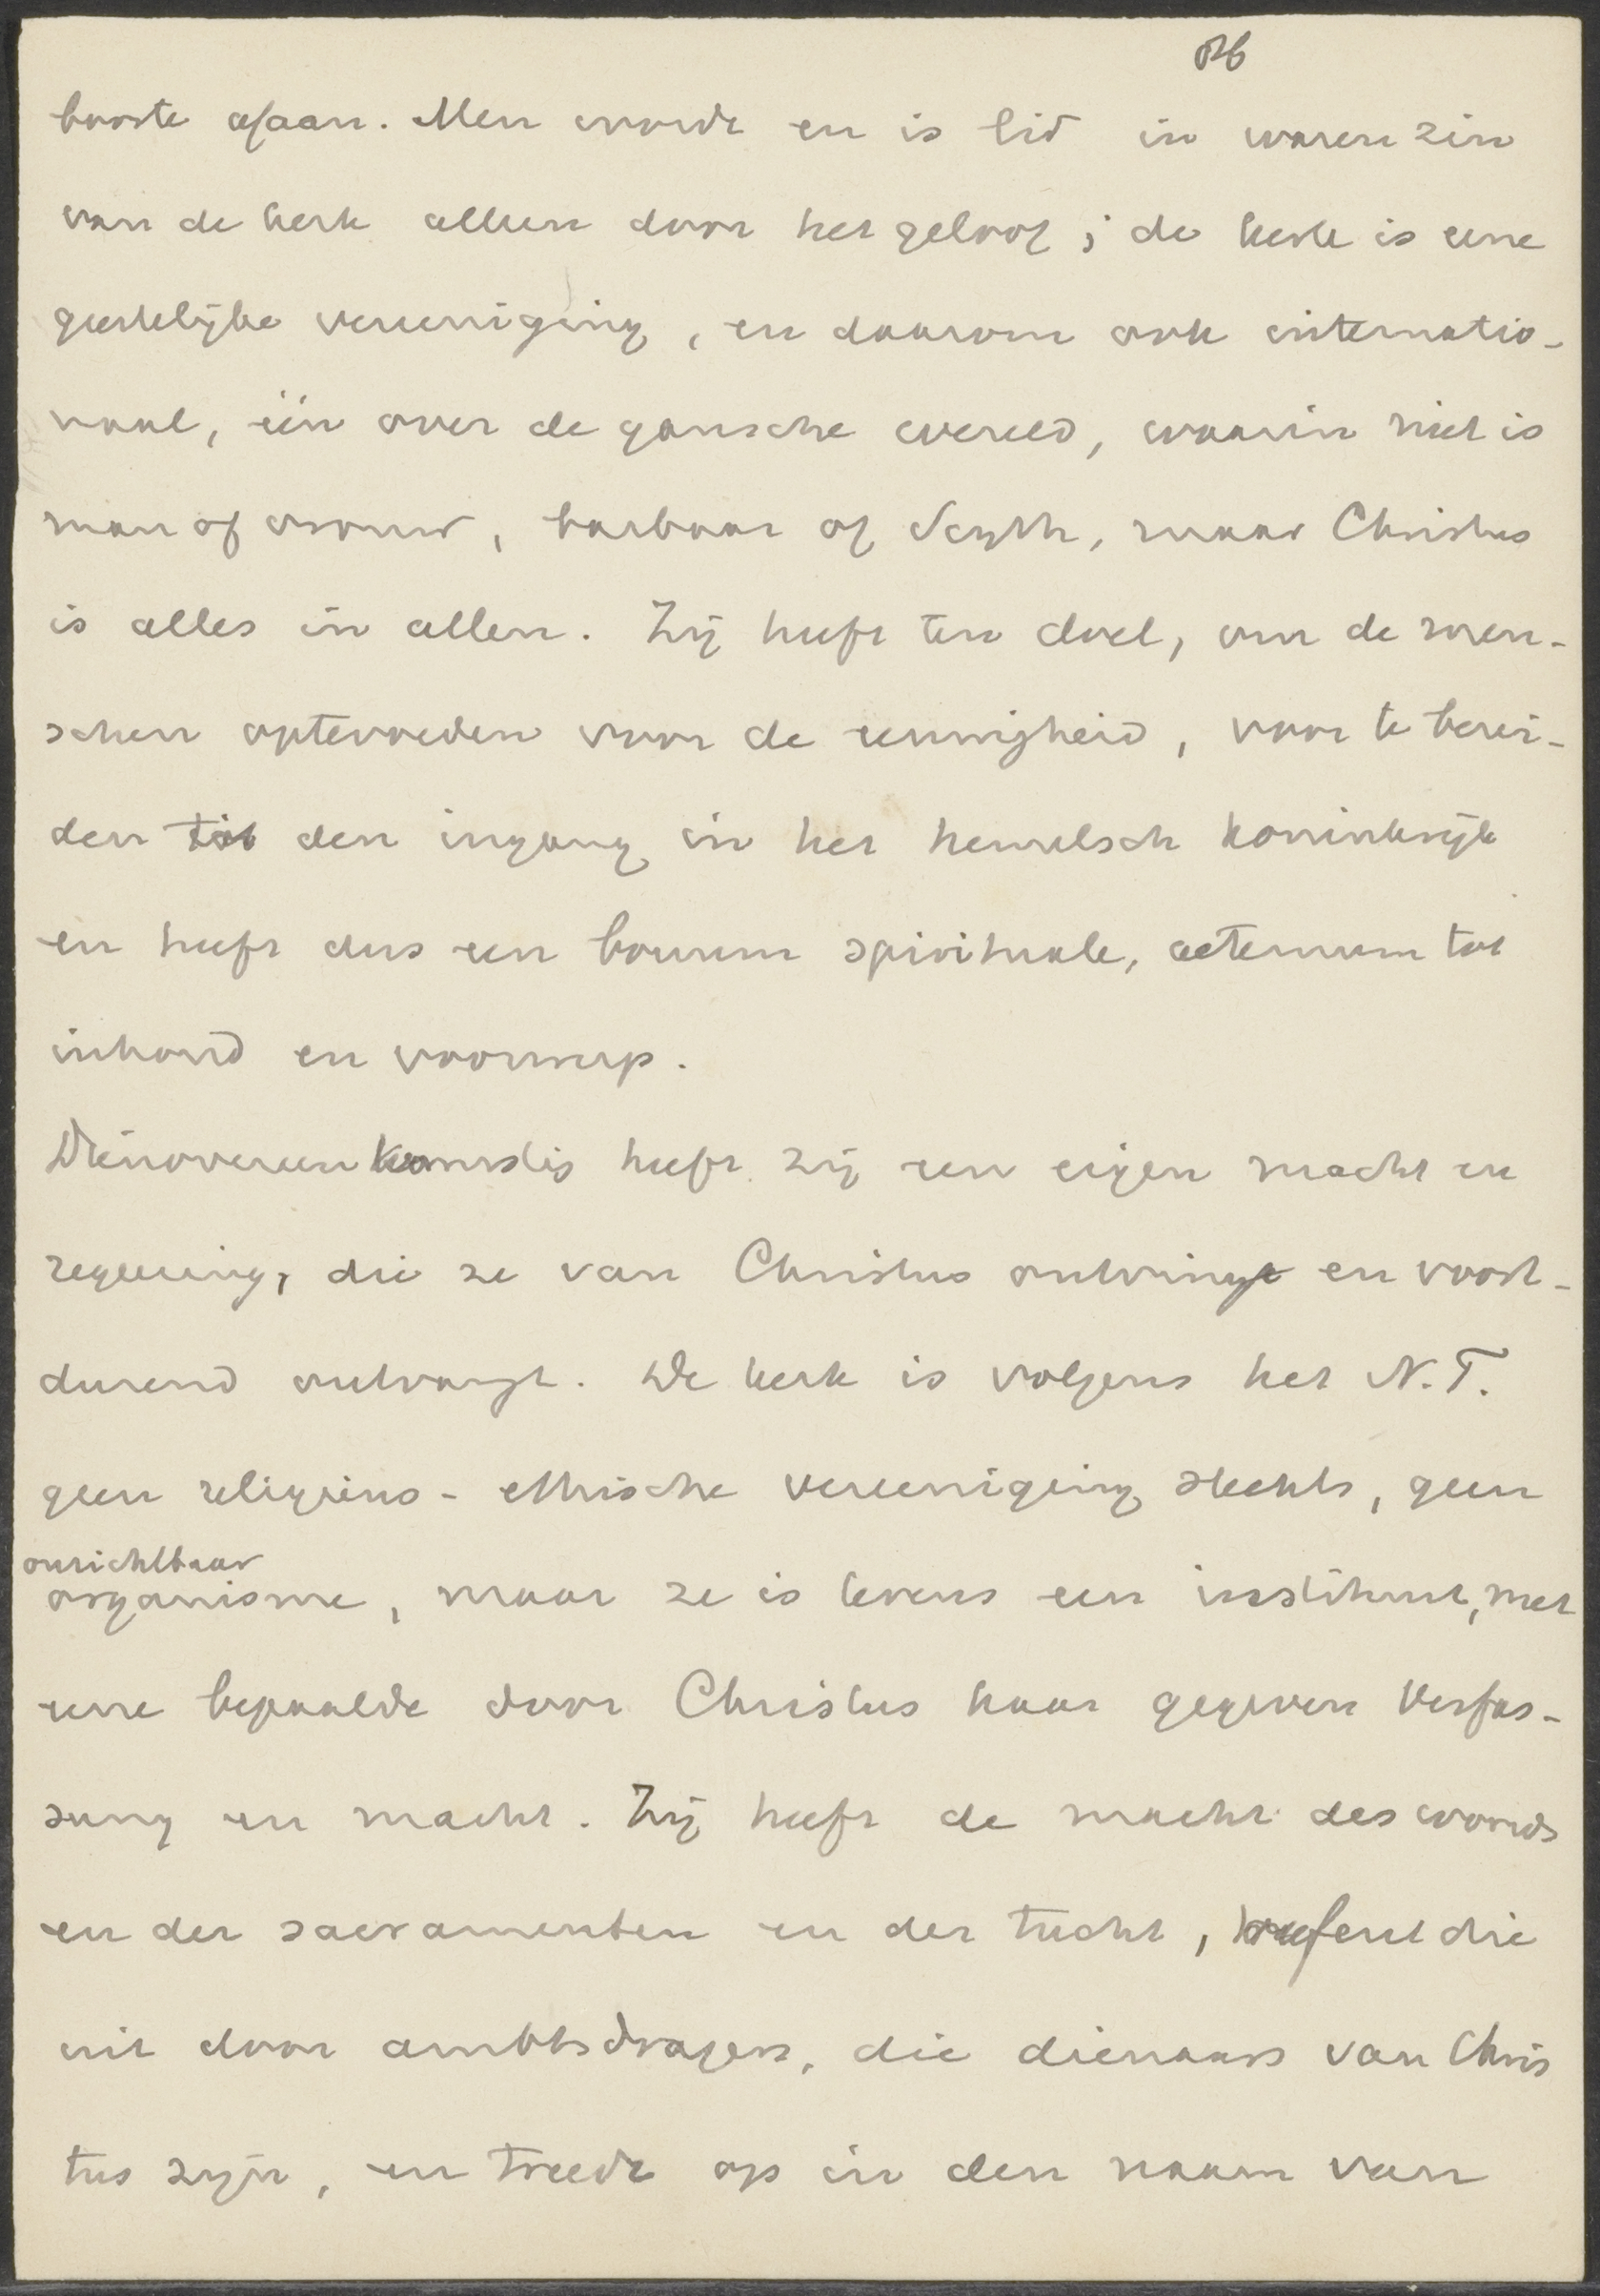 boorte afaan. Men wordt en is lid in waren zin
van de kerk alleen door het geloof; de kerk is eene
geestelijke vereeniging, en daarom ook internatio-
naal, één over de gansche wereld, waarin niet is
man of vrouw, barbaar of Scyth, maar Christus
is alles in allen. Zij heeft ten doel, om de men-
schen optevoeden voor de eeuwigheid, voor te berei-
den tot den ingang in het hemelsch koninkrijk
en heeft dus een bonum spirituale, aeternum tot
inhoud en voorwerp.
Dienovereenkomstig heeft zij een eigen macht en
regeering, die ze van Christus ontving en voort-
durend ontvangt. De kerk is volgens het N.T.
geen religieus-ethische vereeniging slechts, geen
onzichtbaar
organisme, maar ze is tevens een instituut, met
eene bepaalde door Christus haar gegeven Verfas-
sung en macht. Zij heeft de macht des woords
en der sacramenten en der tucht, oefent die
uit door ambtsdragers, die dienaars van Chris
tus zijn, en treedt op in den naam van